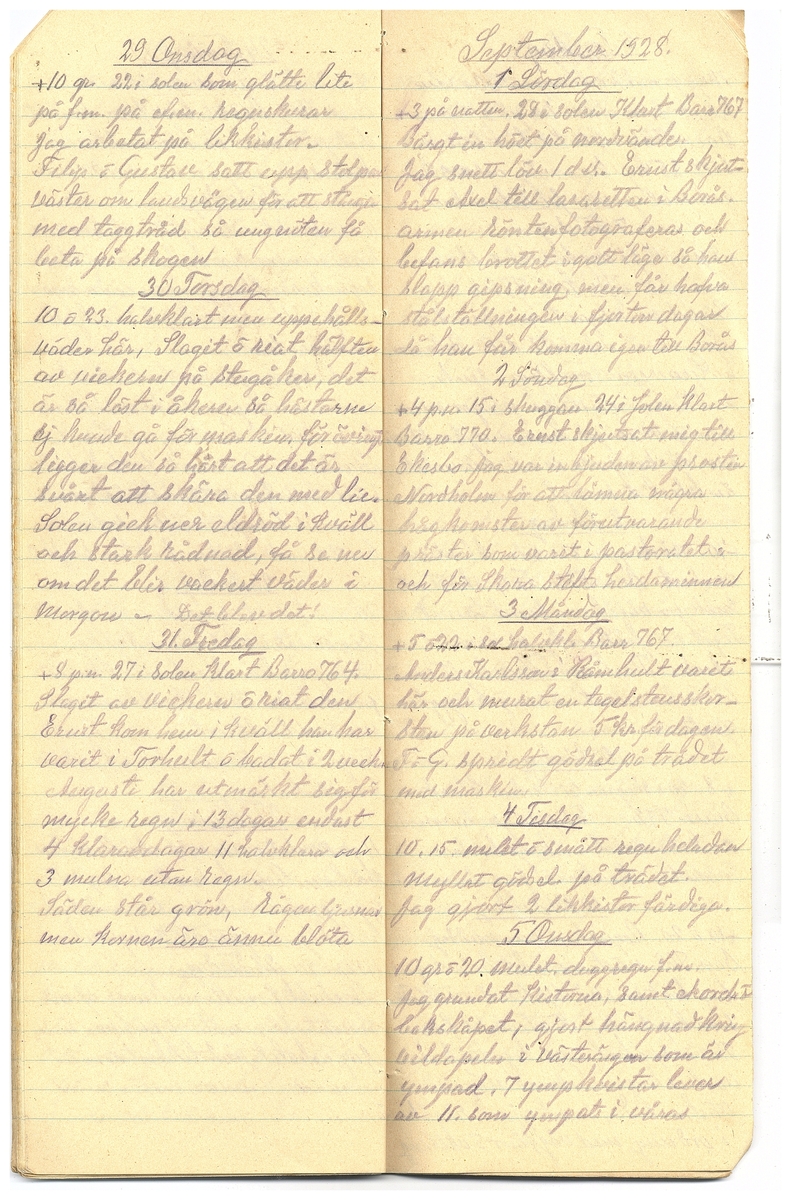 29 Onsdag
+10 gr. 22 i solen som glätti lite
på f.m. på e.m. regnskurar
Jag arbetat på likkistor.
Filip o Gustav satt upp stolpar
väster om landsvägen för att stänga
med taggtråd så ungnöten få
beta på skogen
30 Torsdag
10 o 23. halvklart men uppehålls-
väder här, Slaget o kiat hälften
av vickern på stugåker, det
är så löst i åkern så hästarne
ej kunde gå för maskin, för övrigt
ligger den så hårt att det är
svårt att skära den med lie.
Solen gick ner eldröd i kväll
och stark rådnad, få se nu
om det blir vackert väder i
Morgon – Det blev det!
31. Fredag
+8 p.m. 27 i solen Klart Barro 764.
Slaget av vickern o kiat den
Ernst kom hem i kväll han har
varit i Torhult o badat i 2 veck
Augusti har utmärkt sig för
mycke regn i 13 dagar endast
4 klara dagar 11 halvklara och
3 mulna utan regn.
Säden står grön, Rågen ljusnar
men kornen äro ännu blöta
September 1928.
1 Lördag
+3 på natten. 28 i solen Klart Barr 767
Bärgt in höet på nordränder
Jag snett löv 1 d.v. Ernst skjut-
sat Axel till lasarettet i Borås.
armen Röntenfotograferas och
befans brottet i gott läge så han
slapp gipsning men får hafva
stålställningen i fjorton dagar
så han får komma igen till Borås
2 Söndag
+4 p.n. 15 i skuggan 24 i Solen Klart
Barro 770. Ernst skjutsat mig till
Ekesbo jag var inbjuden av prosten
Nordholm för att lämna några
hågkomster av förutvarande
präster som varit i pastoratet
och för Skara stifts herdaminnen
3 Måndag
+5 o 22 i sol halvkla Barr 767
Anders Karlsson i Råmhult varit
här och murat en tegelstensskor-
sten på verkstan 5 kr för dagen
F o G. spridt gödsel på trädet
med maskin.
4 Tisdag
10. 15. mulet o smått regn heladan
Myllat gödsel på trädet.
Jag gjort 2 likkistor färdiga.
5 Onsdag
10 gr o 20 mulet, duggregn f.m.
Jag grundat Kistorna, samt
bakskåpet, gjort hängnad kring
vildapeln i västerängen som är
ympad. 7 ympkvistar lever
av 11. som ympats i våras